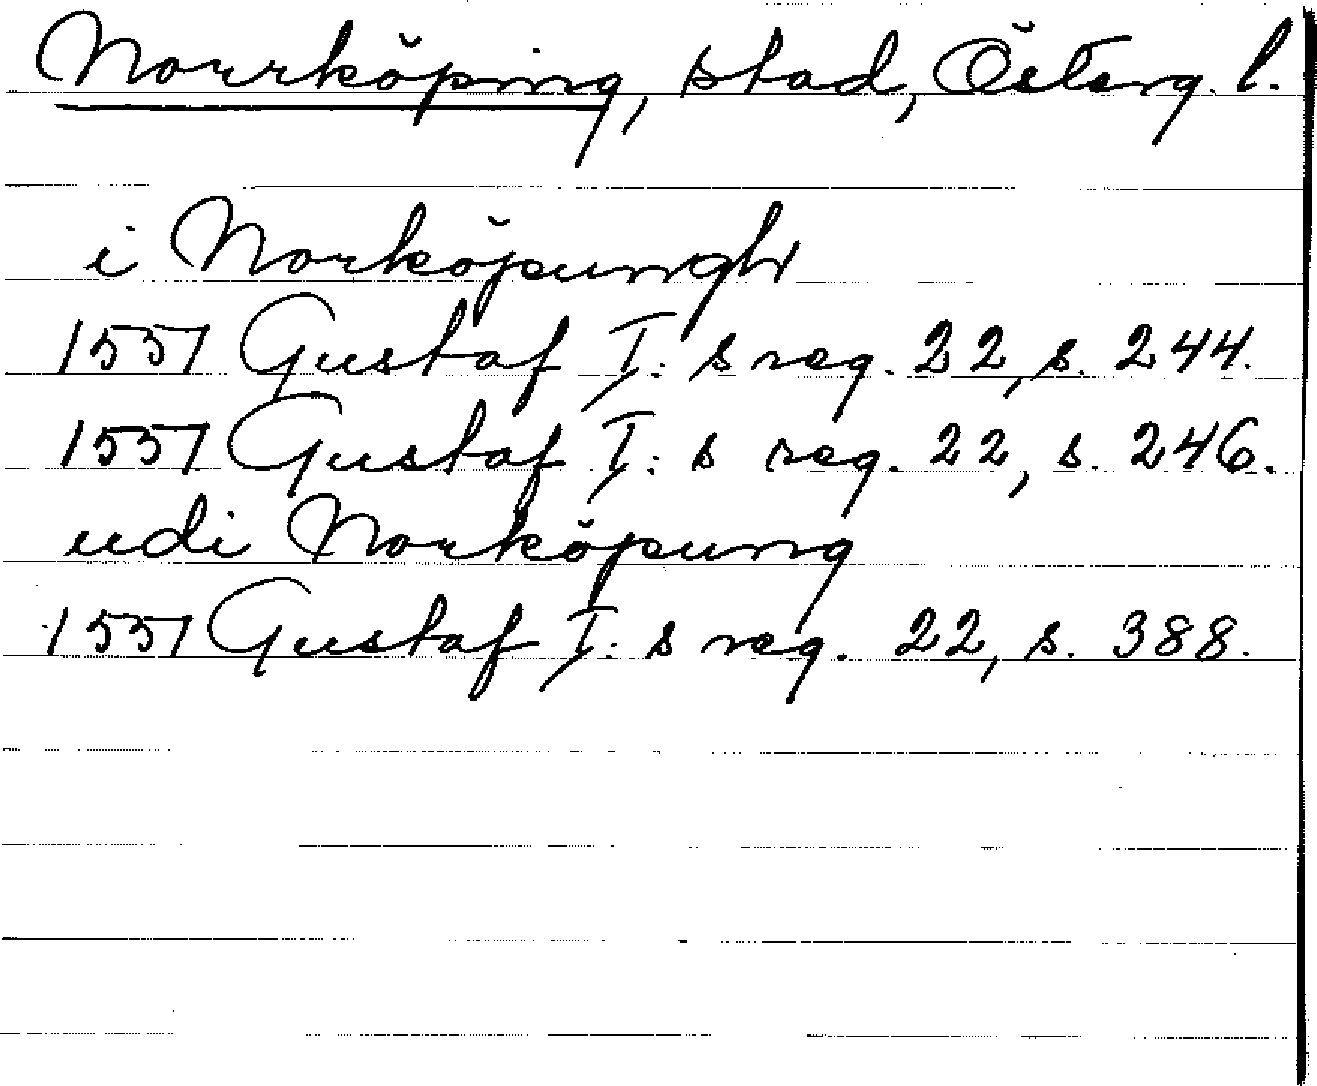 Norrköping, stad, Österg. l.
i Norköpungh
1551 Gustaf I:s reg. 22, s. 244.
1551 Gustaf I:s reg. 22, s. 246.
udi Norköpung
1551 Gustaf I:s reg. 22, s. 388.